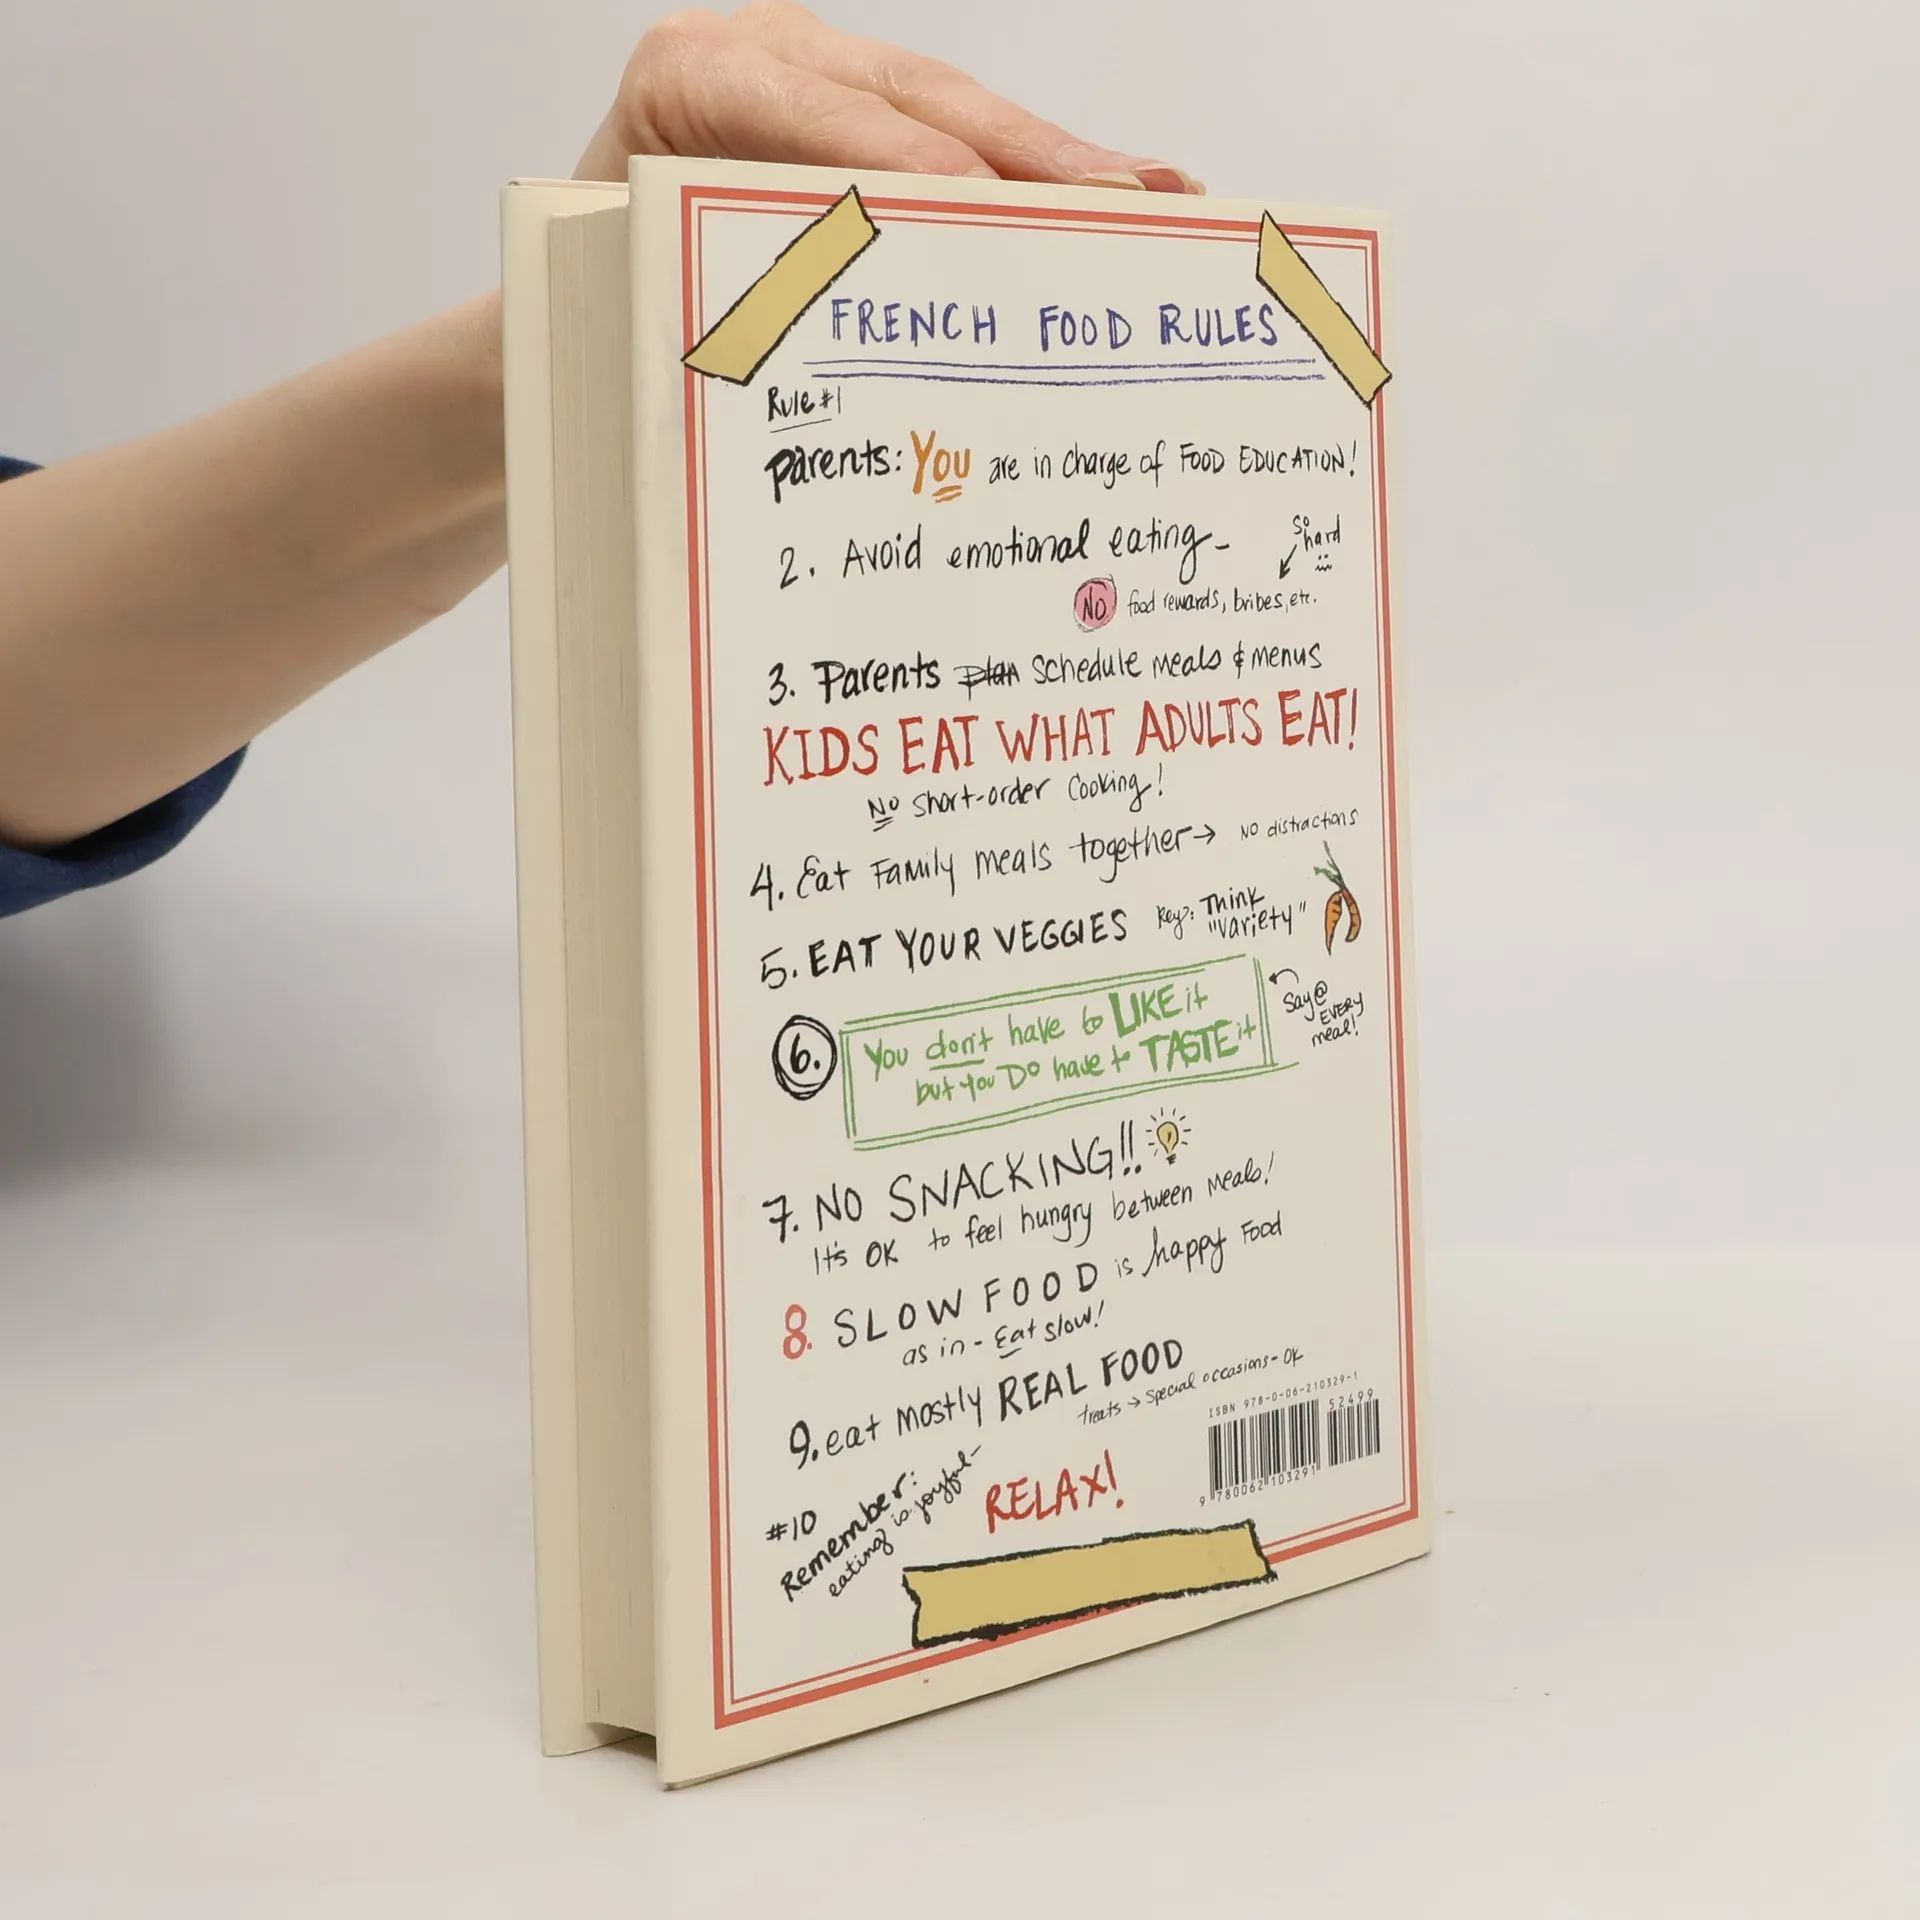 FRENCH FOOD RULES
Rule #1
parents: You are in charge of FOOD EDUCATION!
2. Avoid emotional eating-
So hard
NO food rewards, bribes, etc.
3. Parents plan schedule meals & menus
KIDS EAT WHAT ADULTS EAT!
No short-order cooking!
4. Eat Family meals together → NO distractions
5. EAT YOUR VEGGIES
Key: Think
"variety"
6.
You don't have to LIKE it
but you DO have to TASTE it
Say @
EVERY
meal!
7. NO SNACKING!!
It's OK to feel hungry between meals!
8. SLOW FOOD is happy Food
as in - Eat slow!
9. eat mostly REAL FOOD
treats → special occasions - OK
#10
Remember:
eating is joyful-
RELAX!
ISBN 978-0-06-210329-1
52499
9 780062 103291